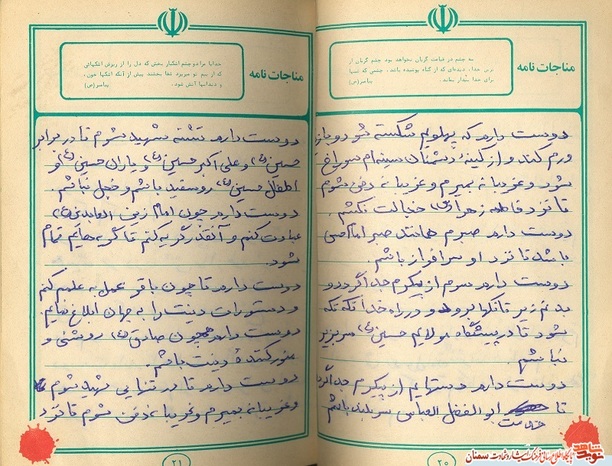 مناجات نامه
سه چشم در قیامت گریان نخواهد بود. چشم گریان از
ترس خدا، دیده‌ای که از گناه پوشیده باشد، چشمی که شبها
برای خدا بیدار بماند.
پیامبر (ص)
دوست دارم که پهلویم شکسته شود و بازو
ورم کند و از کینهٔ دشمنان سینه‌ام سوراخ
شود و غریبانه بمیرم و غریبانه دفن شوم
تا نزد فاطمه زهرا (س) خجالت نکشم.
دوست دارم صبرم همانند صبر امام حسن
باشد تا نزد او سرافراز باشم.
دوست دارم سرم از پیکرم جدا گردد و
بدنم زیر تانکها برود و در راه خدا تکه تکه
شود تا در پیشگاه مولایم حسین (ع) سربزیر
نباشم.
دوست دارم دستهایم از پیکرم جدا گردد
تا خدمت ابوالفضل العباس سربلند باشم
۲۰
مناجات نامه
خدایا مرا دو چشم اشکبار بخش که دل را از ریزش اشکهائی
که از بیم تو میریزد شفا بخشند پیش از آنکه اشکها خون،
و دندانها آتش شود.
پیامبر (ص)
دوست دارم تشنه شهید شوم تا در برابر
حسین (ع) و علی اکبر حسین (ع) و یاران حسین (ع) و
اطفال حسین (ع) روسفید باشم و خجل نباشم.
دوست دارم چون امام زین العابدین (ع)
عبادت کنم و آنقدر گریه کنم تا گریه‌هایم تمام
شود.
دوست دارم تا چون باقر عمل به علمم کنم
و دستورات دینت را به جهان ابلاغ نمایم.
دوست دارم همچون صادق (ع) روشنی و
منور کننده دینت باشم.
دوست دارم تا در تنهایی شهید شوم
و غریبانه بمیرم و غریبانه دفن شوم تا نزد
۲۱
نوید شاهد
پایگاه اطلاع رسانی فرهنگ ایثار و شهادت سمنان